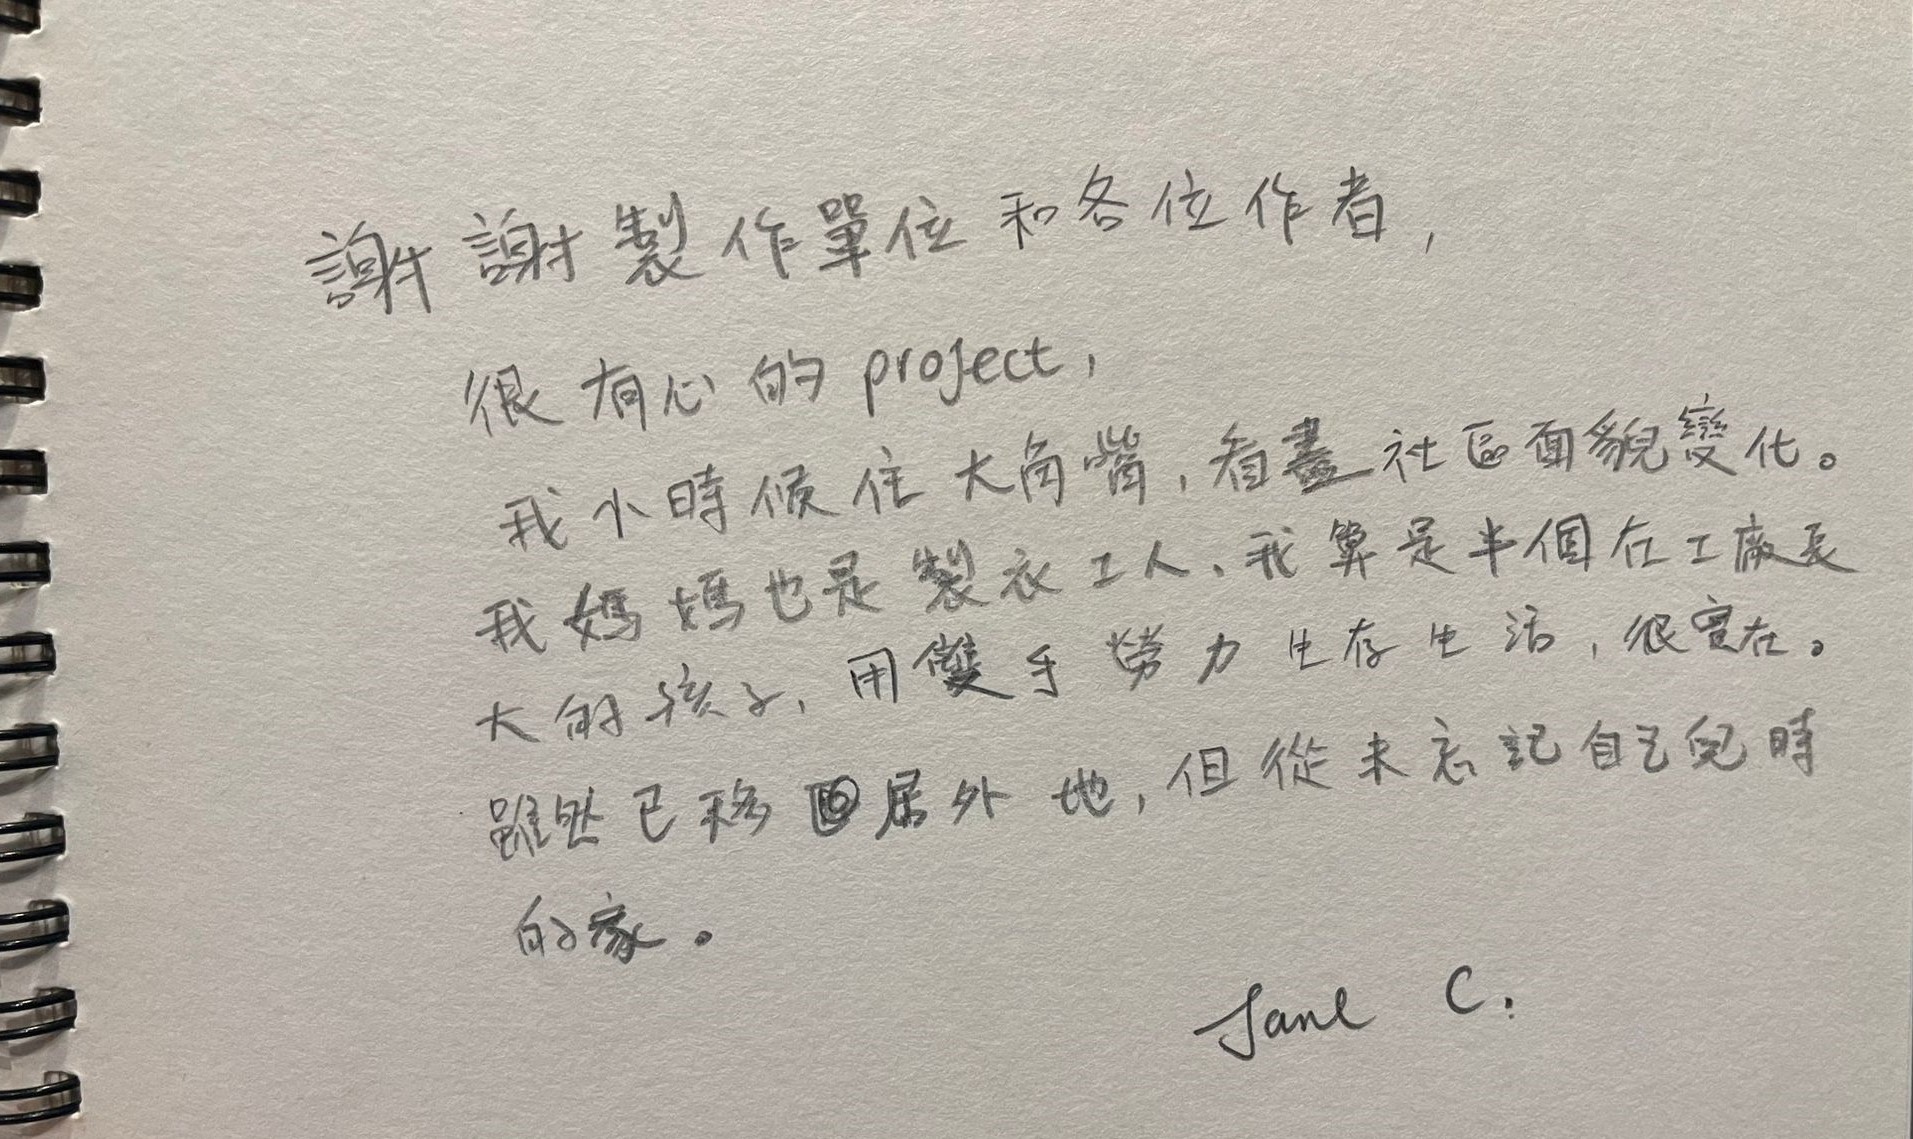 謝謝製作單位和各位作者，
很有心的 project，
我小時候住大角嘴，看盡社區面貌變化。
我媽媽也是製衣工人、我算是半個在工廠長
大的孩子，用雙手勞力生存生活，很實在。
雖然已移居外地，但從未忘記自己兒時
的家。
Jane C.